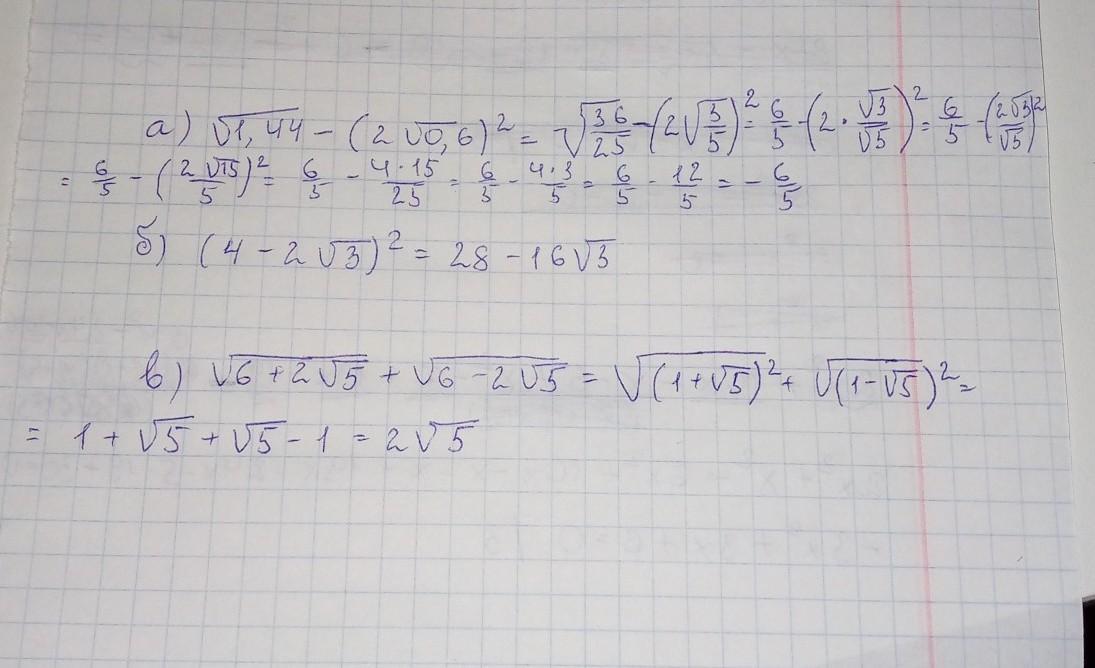 а) √1,44 − (2√0,6)² = √36/25 − (2√3/5)² = 6/5 − (2 · √3/√5)² = 6/5 − (2√3/√5)²
= 6/5 − (2√15/5)² = 6/5 − 4·15/25 = 6/5 − 4·3/5 = 6/5 − 12/5 = − 6/5
б) (4 − 2√3)² = 28 − 16√3
в) √6 + 2√5 + √6 − 2√5 = √(1+√5)² + √(1−√5)² =
= 1 + √5 + √5 − 1 = 2√5